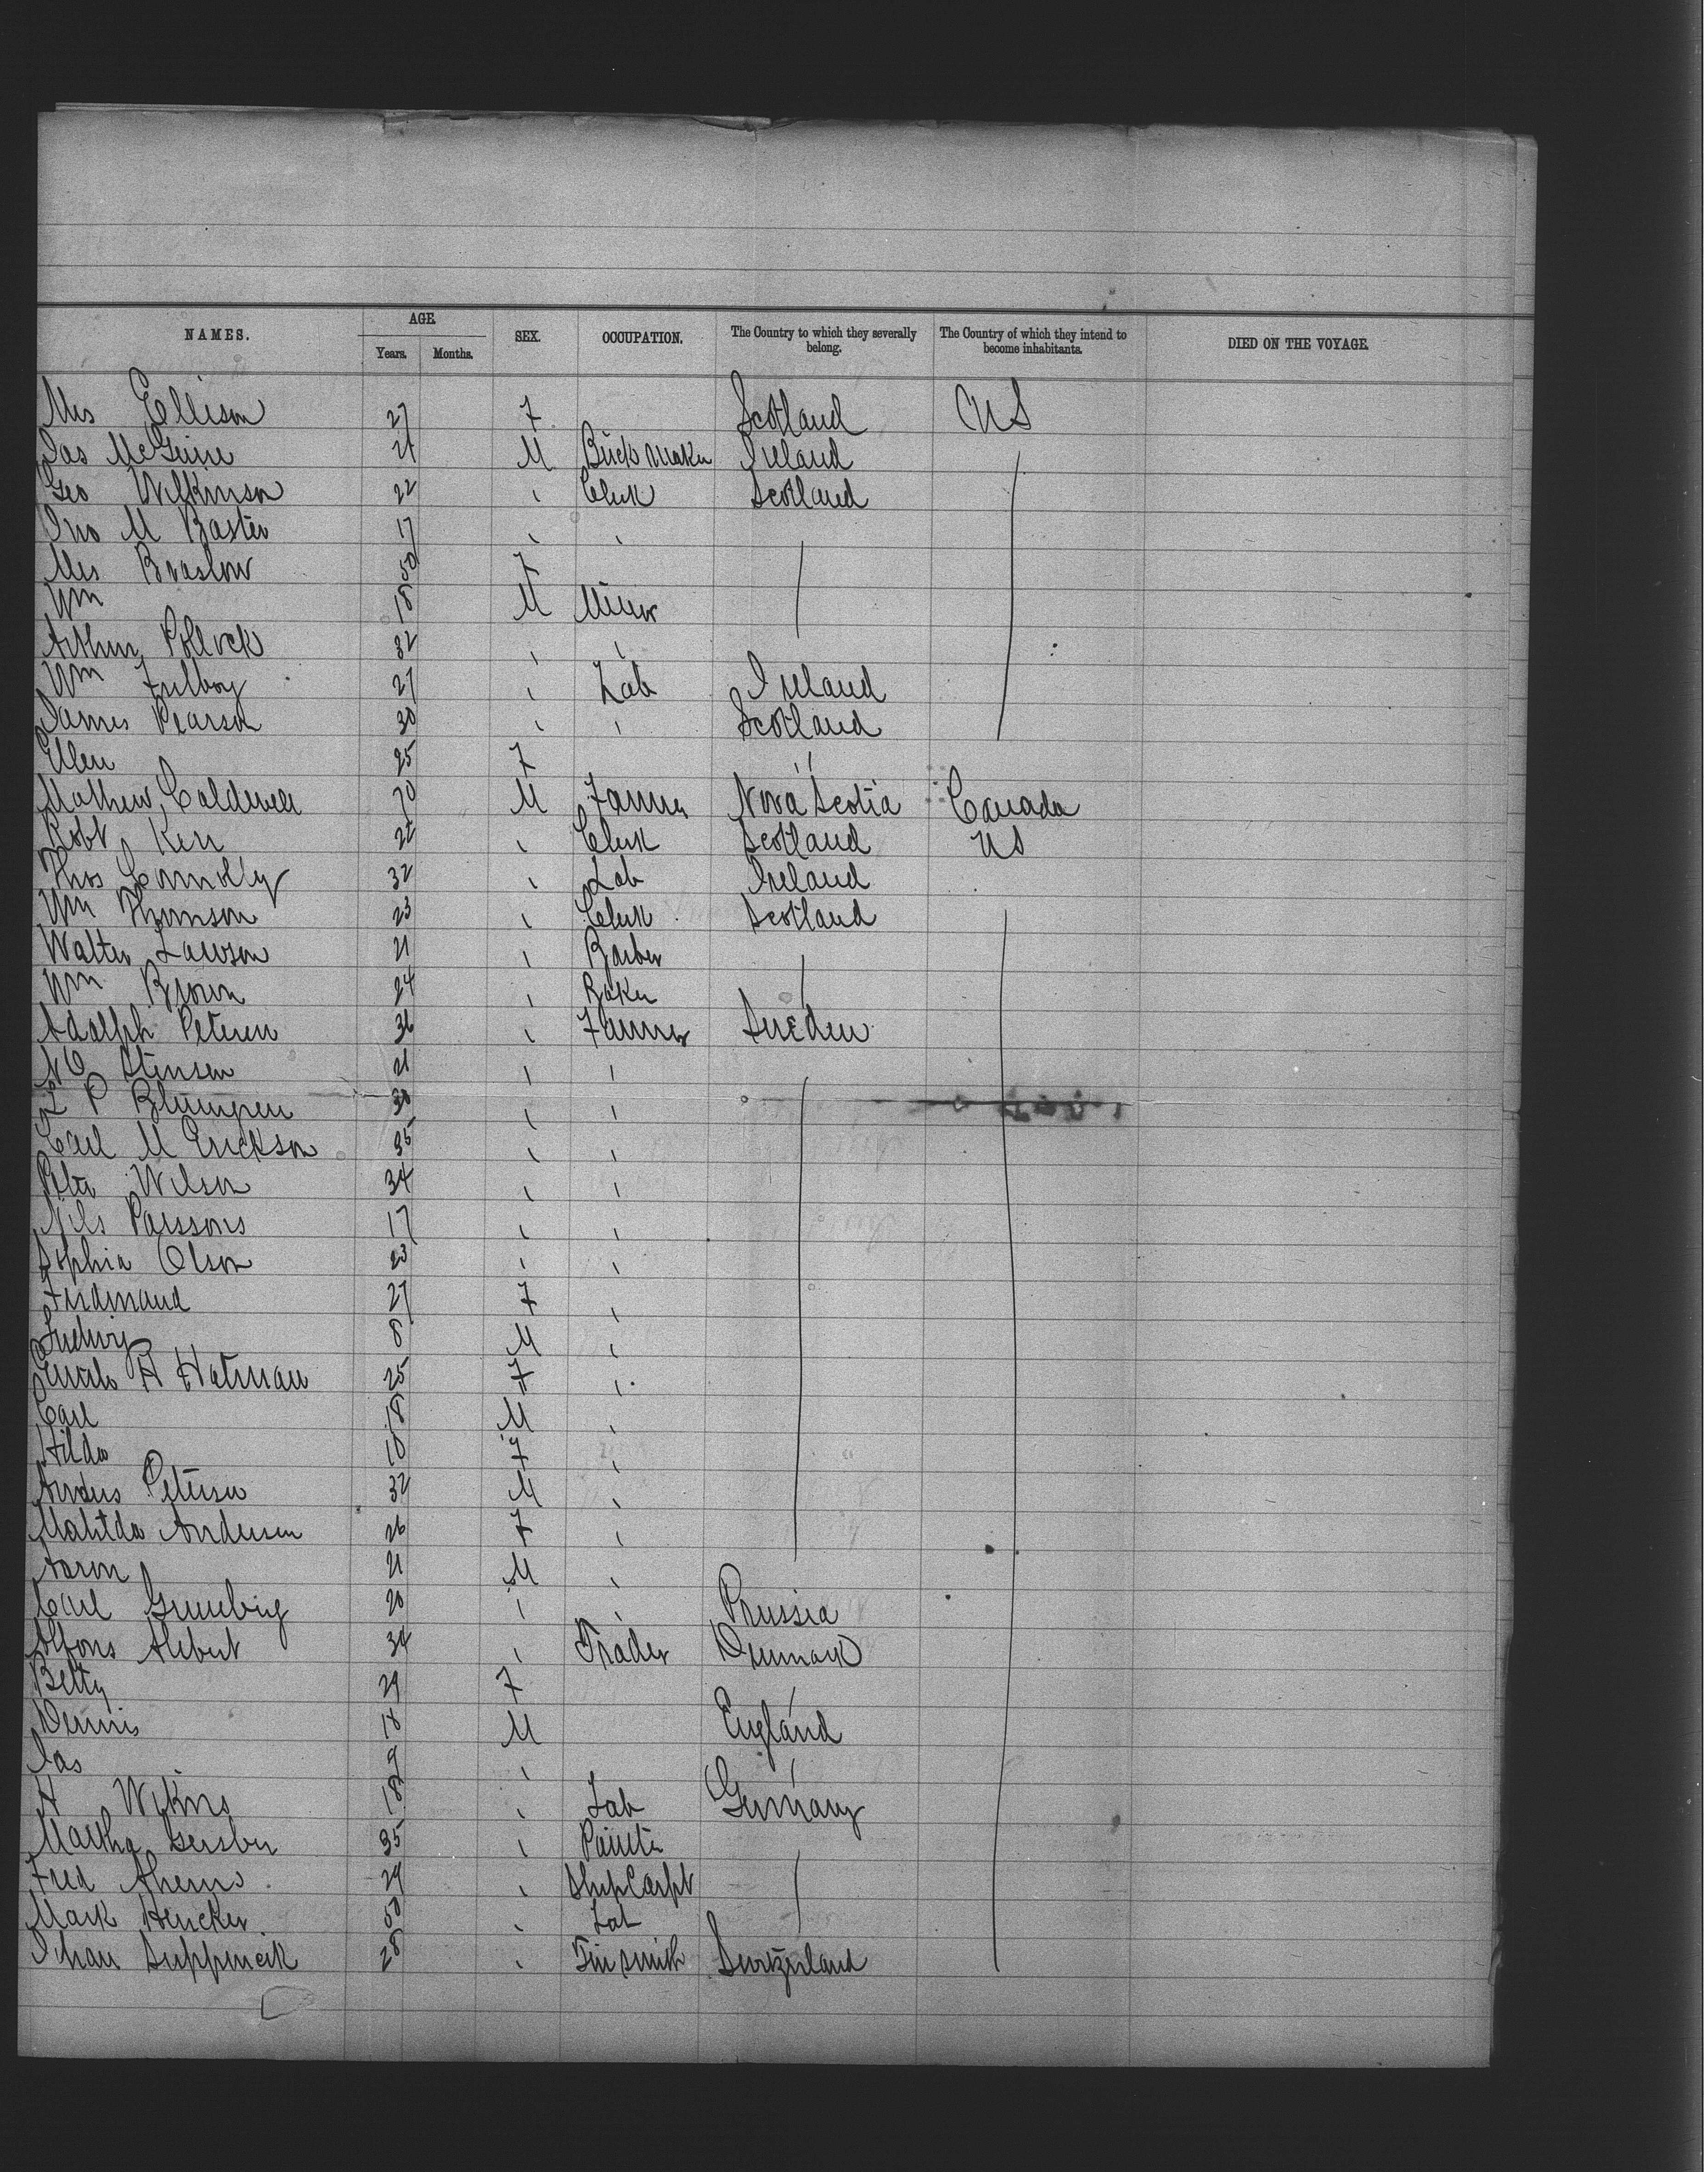 NAMES. AGE Years. Months. SEX. OCCUPATION. The Country to which they severally belong. The Country of which they intend to become inhabitants. DIED ON THE VOYAGE.
Mrs Ellison 27 F Scotland US
Jas McGuire 21 M Brick maker Ireland
Geo Wilkinson 22 " Clerk Scotland
Jno M Baxter 17 " "
Mrs Braslow 50 F
Wm 18 M Miner
Arthur Pollock 32 " "
Wm 27 " Lab Ireland
James Pearson 30 " " Scotland
Ellen 25 F "
Mathew Caldwell 70 M Farmer Nova Scotia Canada
Robt Kerr 22 " Clerk Scotland US
Thos Connolly 32 " Lab Ireland
Wm Thomson 23 " Clerk Scotland
Walter Lawson 21 " Barber
Wm Brown 24 " Baker
Adolph Petersen 36 " Farmer Sweden
N O Stensen 21 " "
L P 30 " "
Carl M Erickson 35 " "
Peter Wilson 34 " "
Nils Parssons 17 " "
Sophia Olson 23 " "
Ferdinand 27 F "
Ludwig 8 M "
A Hatman 25 F "
Carl 18 M "
Hilda 10 F "
Anders Petersen 32 M "
Mahtda Andersen 26 F "
Aaron 21 M "
Carl 20 " " Prussia
Alfons Alebert 34 " Trader Denmark
Betty 29 F "
Dennis 18 M England
Jas 9 " "
H Wikins 18 " Lab Germany
Martha Gersber 35 " Painter
Fred Ahrens 29 " Ship Carpt
Mark Hencker 50 " Lab
28 " Tinsmith Switzerland